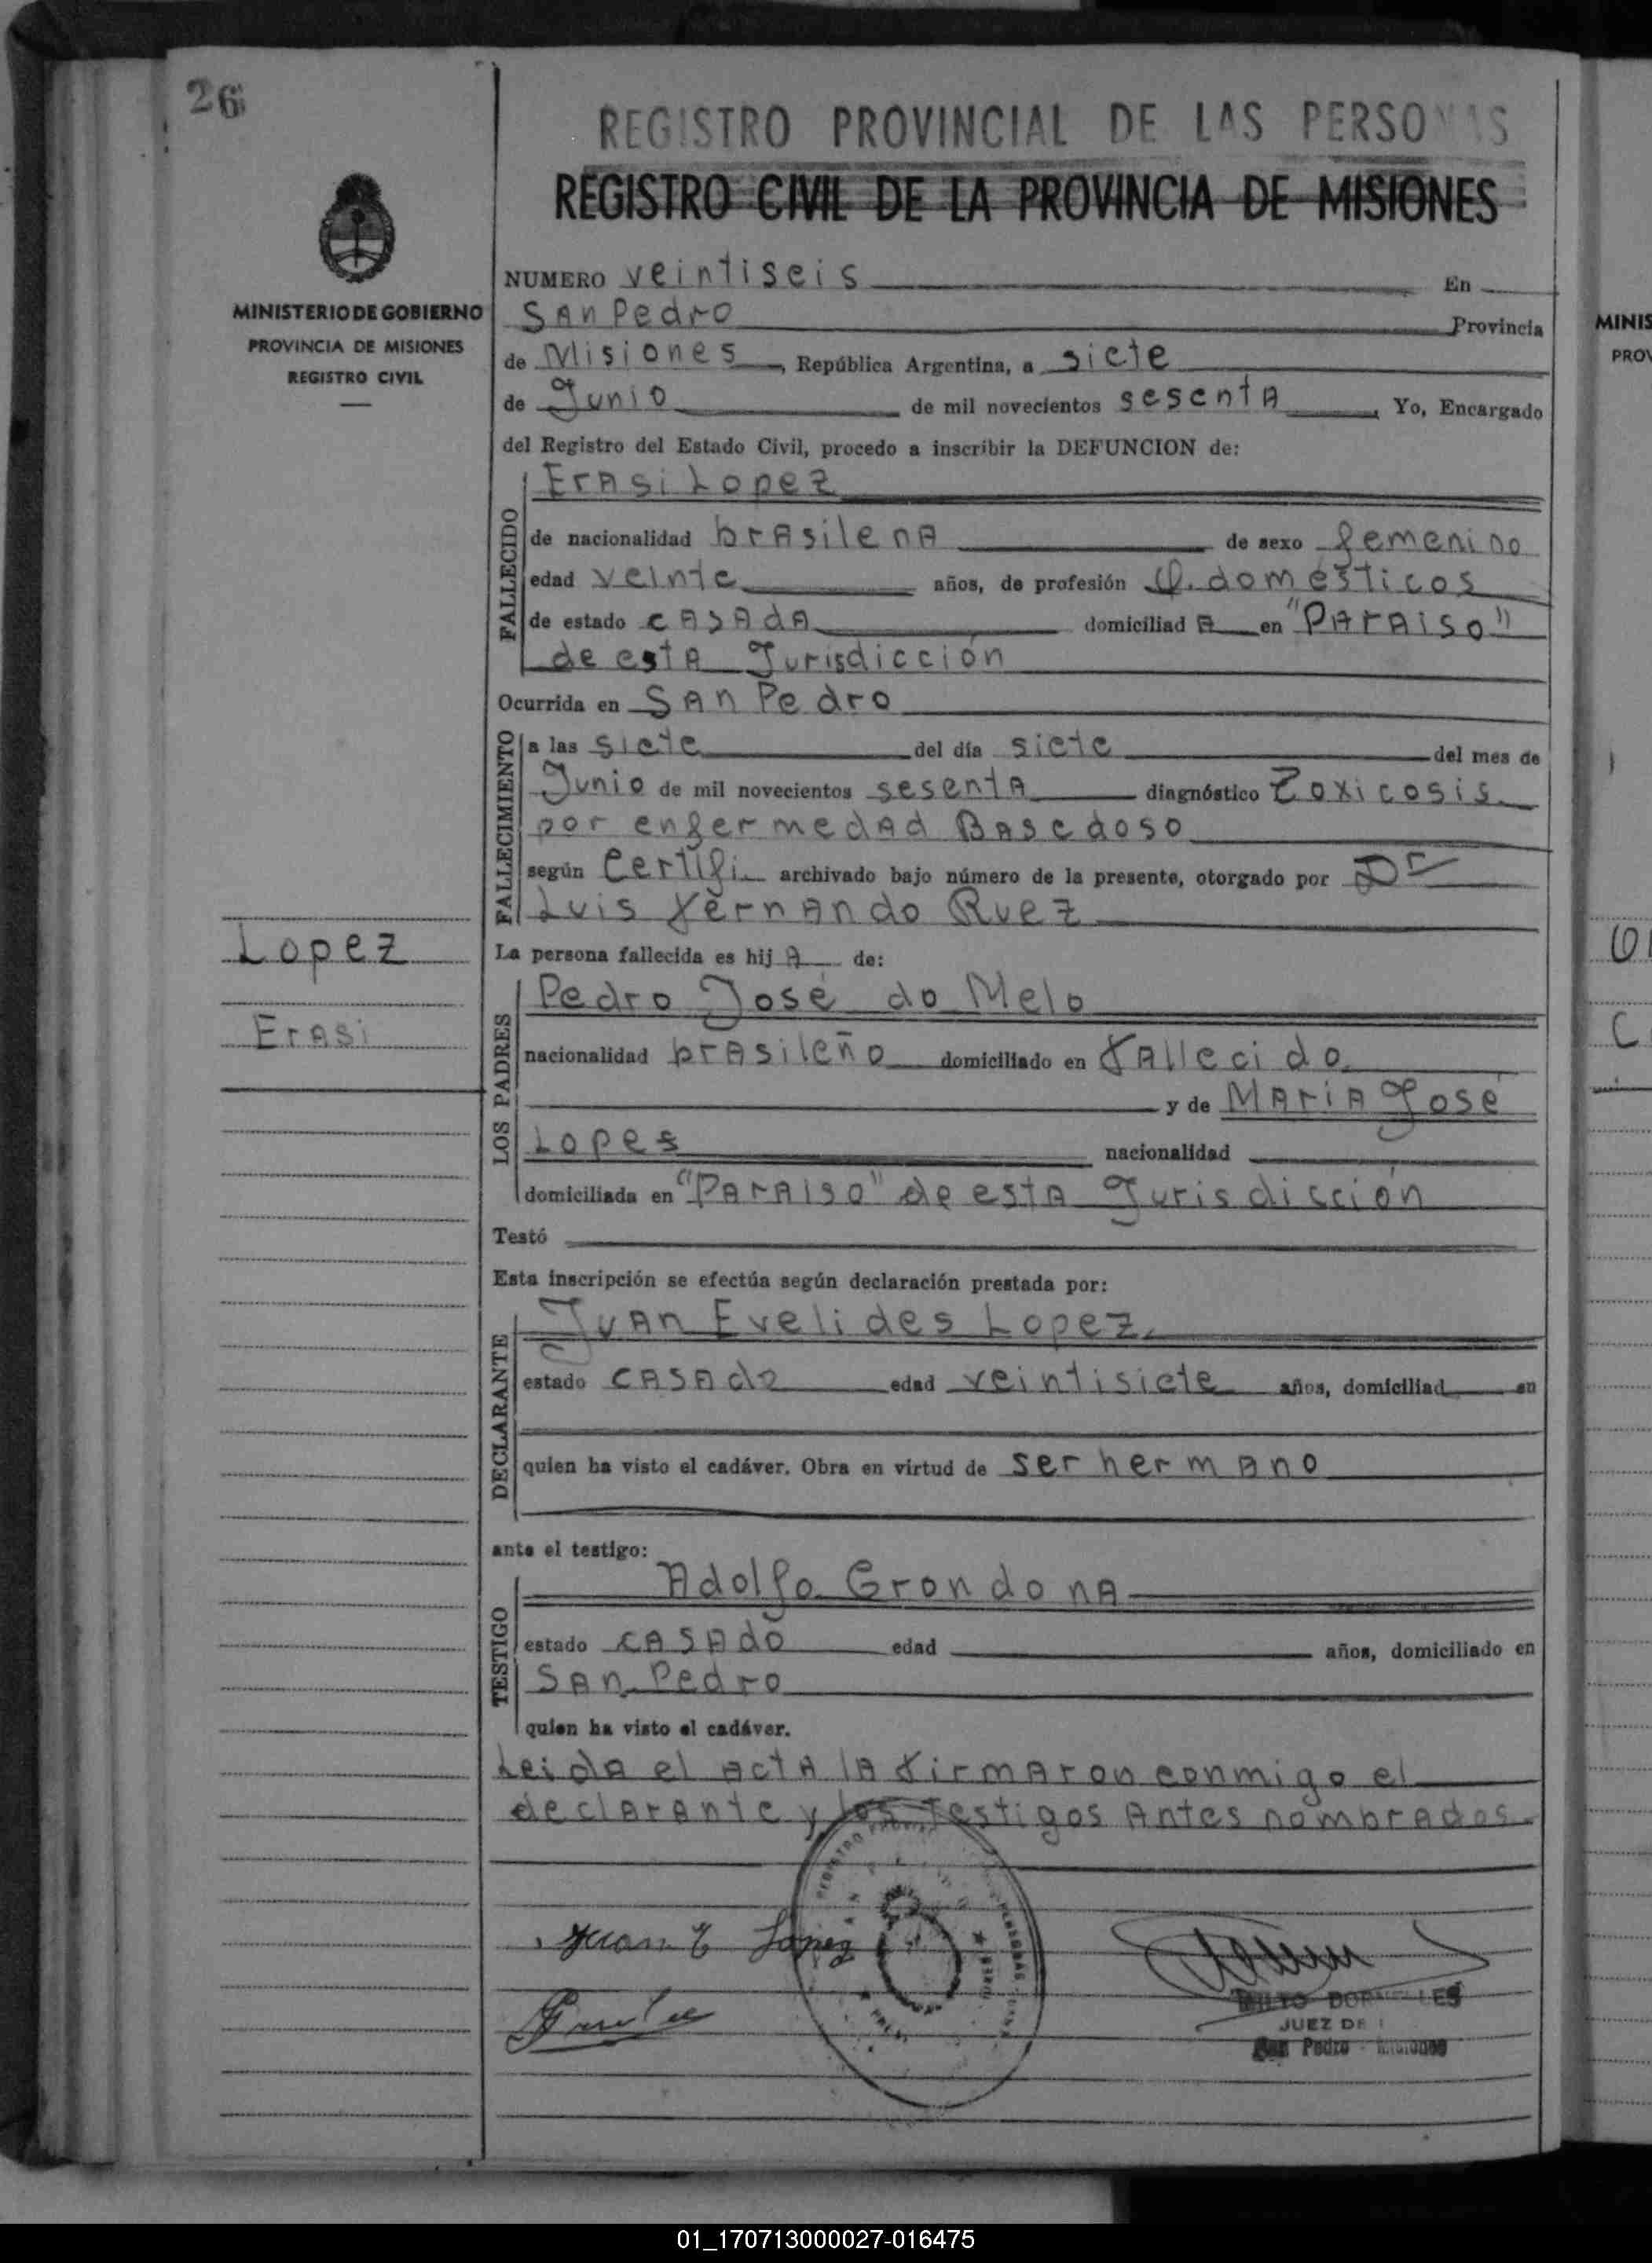 26
REGISTRO PROVINCIAL DE LAS PERSONAS
REGISTRO CIVIL DE LA PROVINCIA DE MISIONES
MINISTERIO DE GOBIERNO
PROVINCIA DE MISIONES
REGISTRO CIVIL
NUMERO veintiseis En
San Pedro Provincia
de Misiones, República Argentina, a siete
de Junio de mil novecientos sesenta, Yo, Encargado
del Registro del Estado Civil, procedo a inscribir la DEFUNCION de:
FALLECIDO
Erasi Lopez
de nacionalidad brasilena de sexo femenino
edad veinte años, de profesión Q. domésticos
de estado casada domiciliad a en "Paraiso"
de esta Jurisdicción
Ocurrida en San Pedro
FALLECIMIENTO
a las siete del día siete del mes de
Junio de mil novecientos sesenta diagnóstico Toxicosis
por enfermedad Basedoso
según Certifi. archivado bajo número de la presente, otorgado por Dr
Luis Fernando Ruez
Lopez
Erasi
La persona fallecida es hij a de:
LOS PADRES
Pedro José do Melo
nacionalidad brasileño domiciliado en fallecido
y de Maria José
Lopes nacionalidad
domiciliada en "Paraiso" de esta Jurisdicción
Testó
Esta inscripción se efectúa según declaración prestada por:
DECLARANTE
Juan Evelides Lopez
estado casado edad veintisiete años, domiciliad en
quien ha visto el cadáver. Obra en virtud de ser hermano
ante el testigo:
TESTIGO
Adolfo Grondona
estado casado edad años, domiciliado en
San Pedro
quien ha visto el cadáver.
Leida el acta la firmaron conmigo el
declarante y los testigos antes nombrados.
Juan E Lopez
JUEZ DE
San Pedro - Misiones
MINIS
PROV
01_170713000027-016475